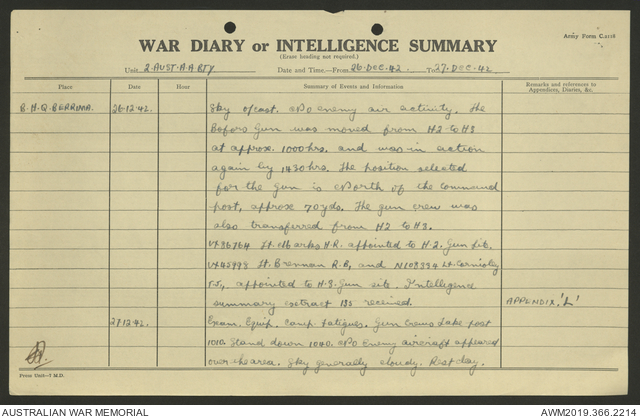 Army Form C.2118
WAR DIARY or INTELLIGENCE SUMMARY
(Erase heading not required.)
Unit 2. AUST. A.A BTY Date and Time—From 26. DEC. 42. To 27. DEC. 42
Place Date Hour Summary of Events and Information Remarks and references to Appendices, Diaries, &c.
B.H.Q. BERRIMA. 26.12.42. Sky o/cast. No enemy air activity. The
Bofors Gun was moved from H2 to H3
at approx. 1000 hrs. and was in action
again by 1430 hrs. The position selected
for the gun is North of the command
post, approx 70 yds. The gun crew was
also transferred from H2 to H3.
VX36764 Lt. Marks H.R. appointed to H.2. Gun Site.
VX45998 Lt. Brennan R.B, and N108394 Lt.
T.J., appointed to H.3. Gun site. Intelligence
summary extract 135 received. APPENDIX. 'L'
27.12.42. Exam. Equip. Camp fatigues. Gun Crews take post
1010. Stand down 1040. No Enemy aircraft appeared
over the area. Sky generally cloudy. Rest day.
Press Unit—7 M.D.
AUSTRALIAN WAR MEMORIAL AWM2019.366.2214